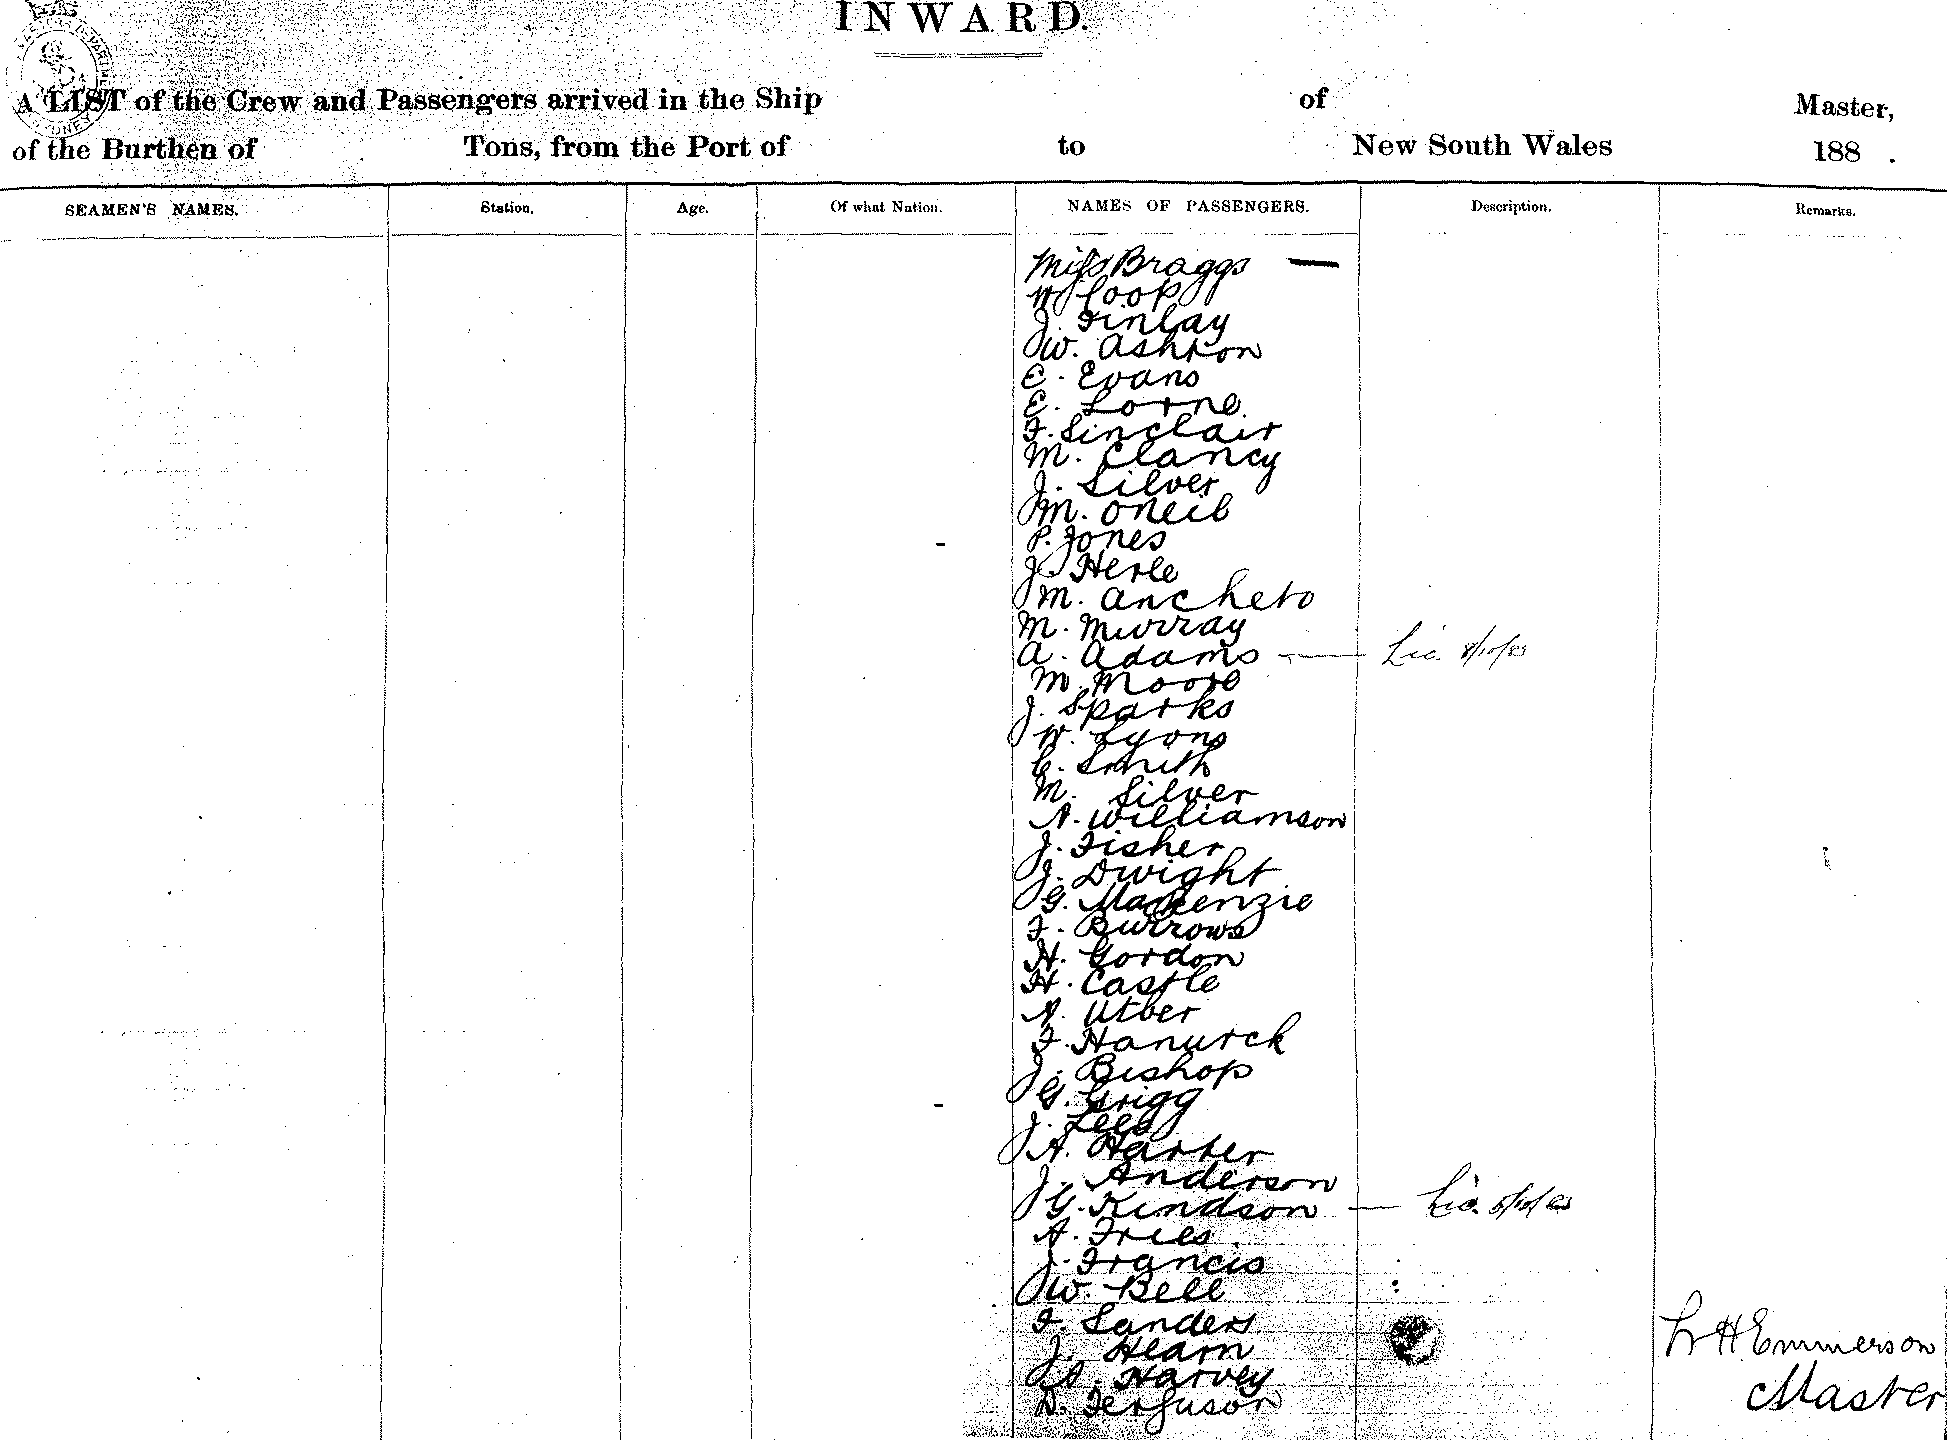 INWARD.
A LIST of the Crew and Passengers arrived in the Ship of Master,
of the Burthen of Tons, from the Port of to New South Wales 188 .
SEAMEN'S NAMES. Station. Age. Of what Nation. NAMES OF PASSENGERS. Description. Remarks.
Miss Braggs —
W Coop
J. Finlay
W. Ashton
E. Evans
E. Lorne
F. Sinclair
M. Clancy
J. Silver
M. ONeil
P. Jones
J. Herle
M. Ancheto
M. Murray
A. Adams — Lic.
M. Moore
J. Sparks
W. Lyons
C. Smith
M. Silver
A. Williamson
J. Fisher
J. Dwight
G. MacKenzie
F. Burrows
H. Gordon
H. Castle
A. Utber
F. Hanurck
J. Bishop
G. Grigg
J. Lees
A. Harter
J. Anderson
G. Kindson — Lic.
A. Fries
J. Francis
W. Bell
F. Sanders
J. Hearn
Harvey
D. Ferguson
H Emmerson
Master